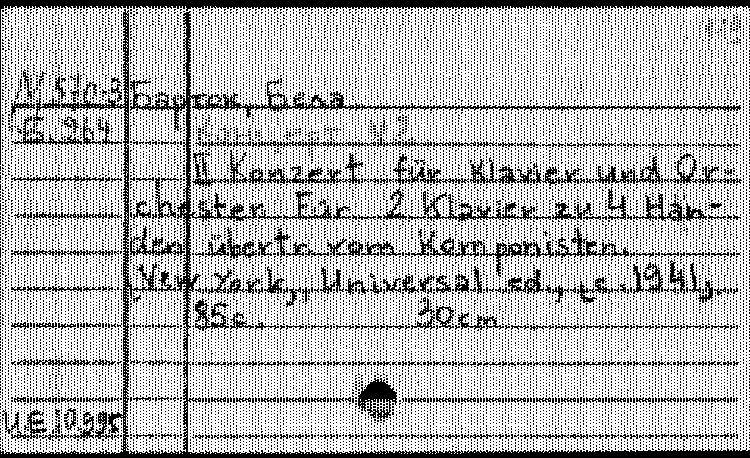 Барток, Бела
Б. 264
II Konzert für Klavier und Or-
chester Für 2 Klavier zu 4 Hän-
den übertr. vom Komponisten.
New York, Universal ed., [c. 1941].
85 c. 30 cm
U.E. 10.995